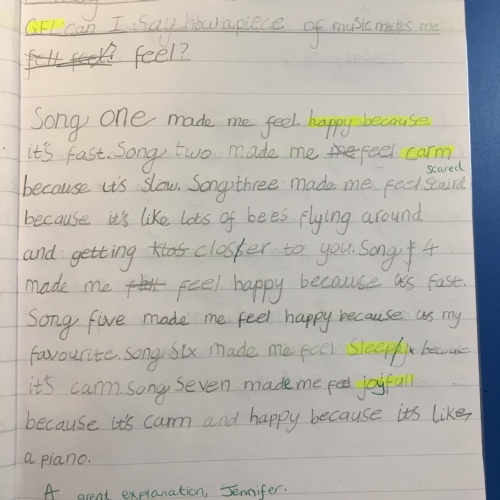 QF: can I say how a piece of music makes me
feel?
Song one made me feel happy because
it's fast. Song two made me feel carm
scared
because it's slow. Song three made me feel scaird
because it's like lots of bees flying around
and getting closer to you. Song 4
made me feel happy because it's fast.
Song five made me feel happy because its my
favourite. Song six made me feel sleepy because
it's carm. Song Seven made me feel joyfull
because it's carm and happy because it's like
a piano.
A great explanation, Jennifer.